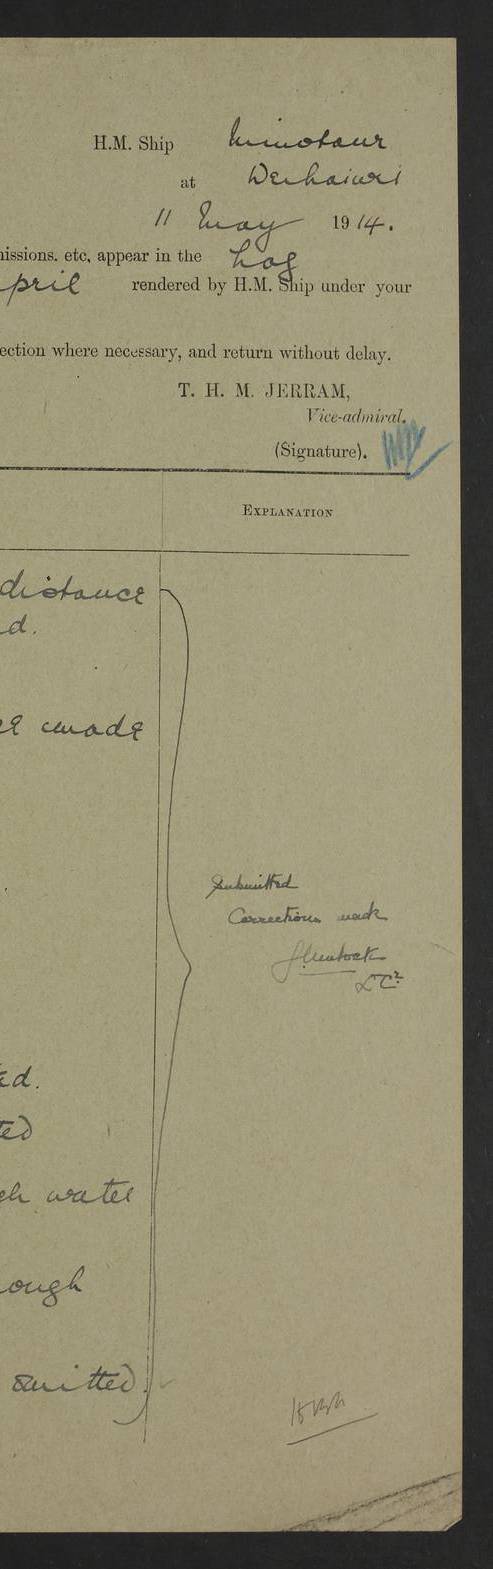 H.M. Ship Minotaur
at Weihaiwei
11 May 1914.
issions, etc, appear in the Log
pril rendered by H.M. Ship under your
ection where necessary, and return without delay.
T. H. M. JERRAM,
Vice-admiral.
(Signature).
EXPLANATION
distance
d.
made
Submitted
Corrections made
Lt Cr
ed.
ted
gh water
ough
omitted.